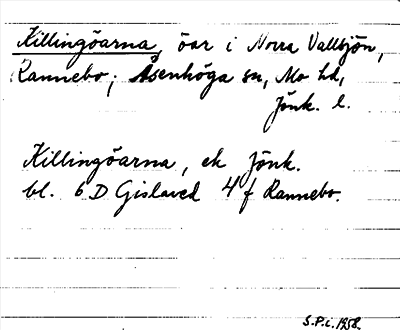 Killingöarna, öar i Norra Vallsjön,
Rannebo; Åsenhöga sn, Mo hd,
Jönk. l.
Killingöarna, ek Jönk.
bl. 6 D Gislaved 4 f Rannebo.
S.P.i. 1958.